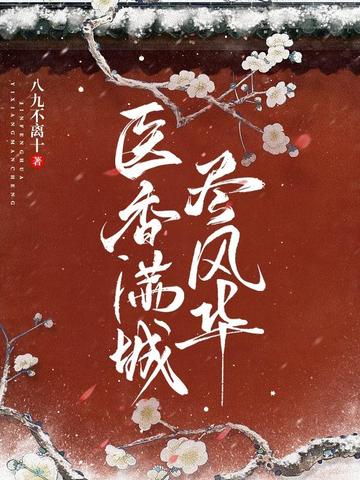 尽风华
医香满城
八九不离十 著
JINFENGHUA
YIXIANGMANCHENG